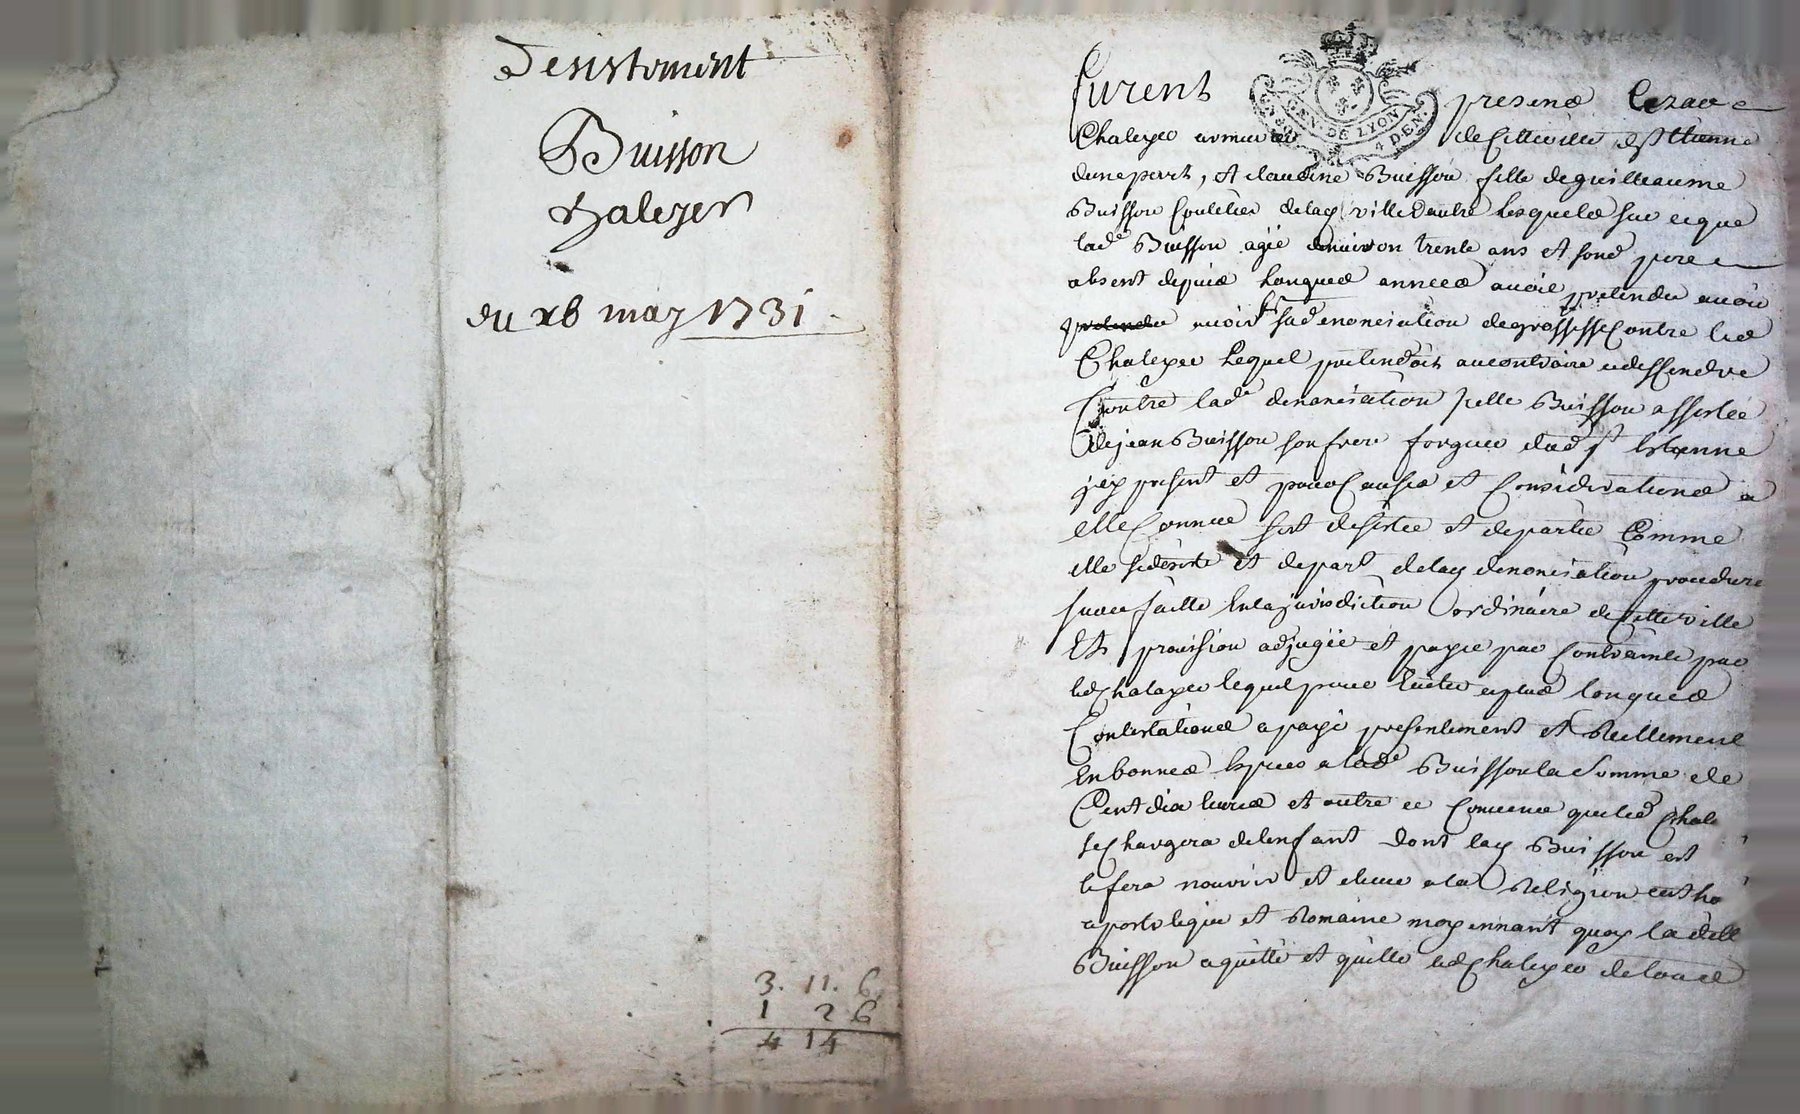 Desistement
Buisson
Chaleyer
du 26 may 1731
3. 11. 6
1 2 6
4 14
Furent presens
GEN. DE LYON
4 DEN.
Chaleyer armurier de cette ville de St Etienne
dune part, et claudine Buisson fille de guilleaume
Buisson Coutelier delad ville dautre lesquels sur ce que
lade Buisson agée denviron trente ans et sond pere
absent depuis longues années auoit pretendu auoir
pretendu auoir fait sade nonciation de grossesse Contre led
Chaleyer lequel pretendoit au contraire se deffendre
Contre lade denonciation jcelle Buisson assistée
de jean Buisson son frere forgeur dud st Estienne
jcy present et pour Causes et Considerations a
elle Connues sest desistée et departie Comme
elle se desiste et depart de lad denonciation procedure
sur ce faitte En la jurisdiction ordinaire de Cette ville
Et prouision adjugée et payée par Contrainte par
led Chaleyer lequel pour Euiter a plus longues
Contestations a payé presentement et Reellement
En bonnes Especes a lade Buisson la Somme de
Cent dix liures et outre ce Conuenu que led Chale
se Chargera de lenfant dont lad Buisson est
le fera nourrir et eleuer a la Religion catho
apostolique et Romaine moyennant quoy la delle
Buisson aquitte et quitte led Chaleyer de tous